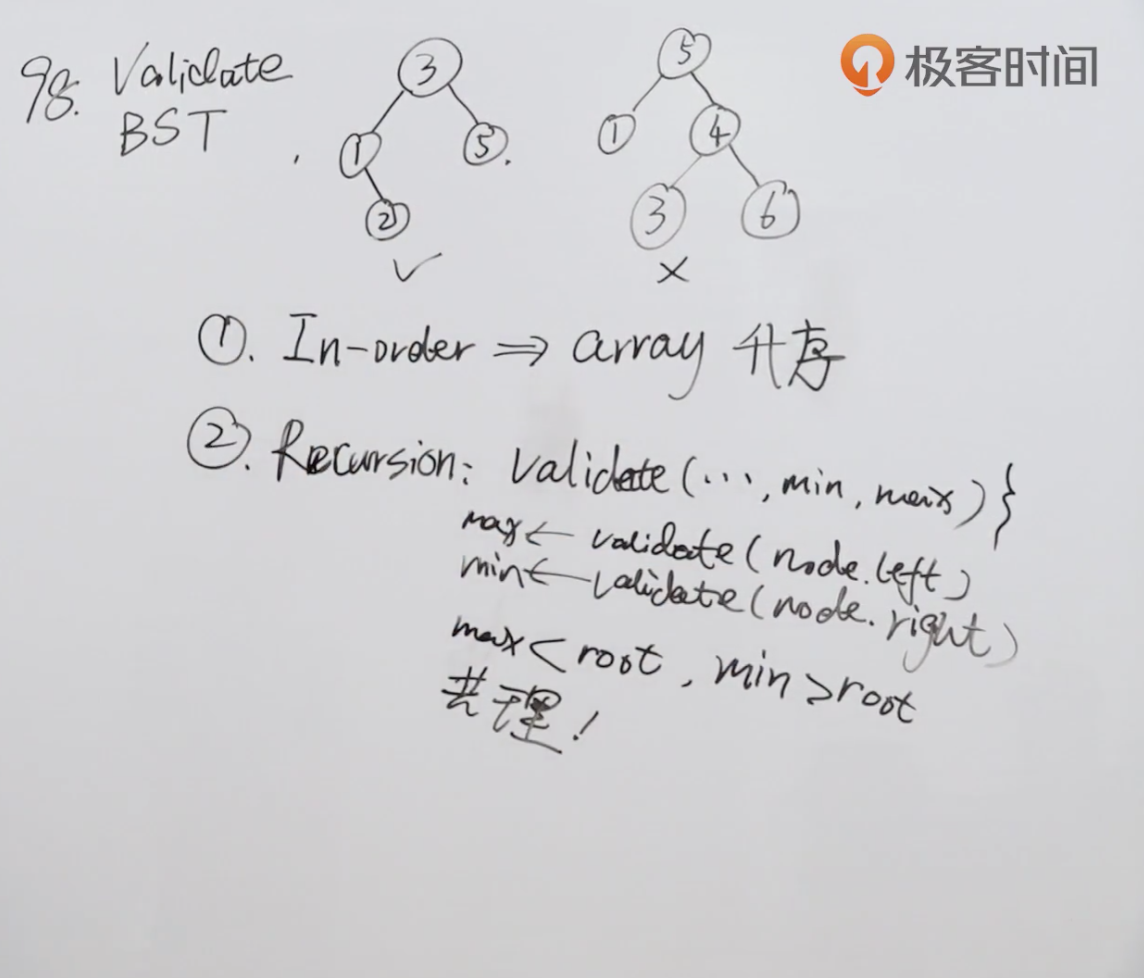 极客时间
98. Validate
BST
3
1 5
2
✓
5
1 4
3 6
×
①. In-order ⇒ array 升序
②. Recursion: validate(..., min, max) }
max ← validate(node.left)
min ← validate(node.right)
max < root, min > root
理!